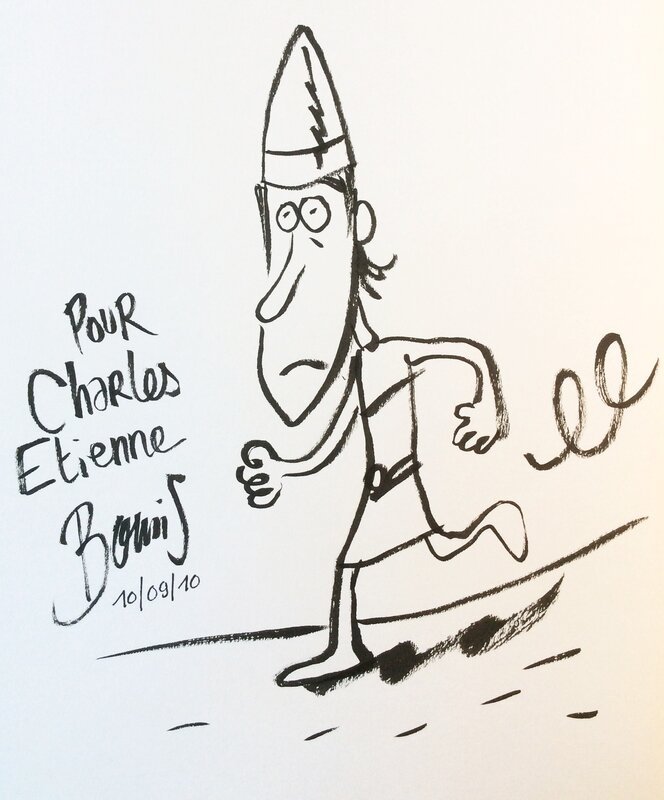 Pour
Charles
Etienne
10/09/10